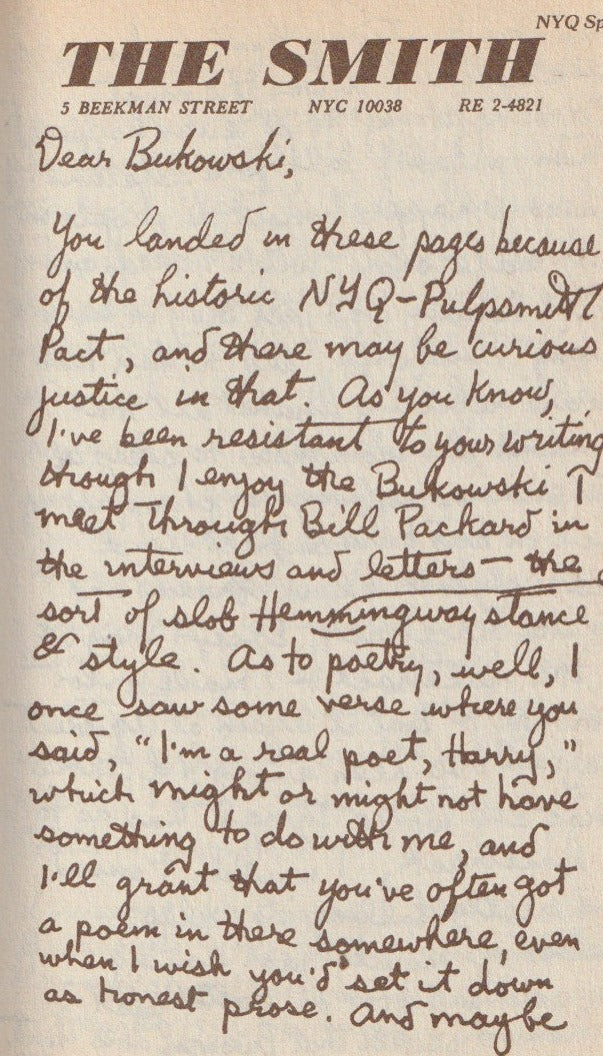 NYQ Sp
THE SMITH
5 BEEKMAN STREET NYC 10038 RE 2-4821
Dear Bukowski,
You landed in these pages because
of the historic NYQ-Pulpsmith
Pact, and there may be curious
justice in that. As you know,
I've been resistant to your writing
though I enjoy the Bukowski I
meet through Bill Packard in
the interviews and letters — the
sort of slob Hemmingway stance
& style. As to poetry, well, I
once saw some verse where you
said, "I'm a real poet, Harry,"
which might or might not have
something to do with me, and
I'll grant that you've often got
a poem in there somewhere, even
when I wish you'd set it down
as honest prose. And maybe